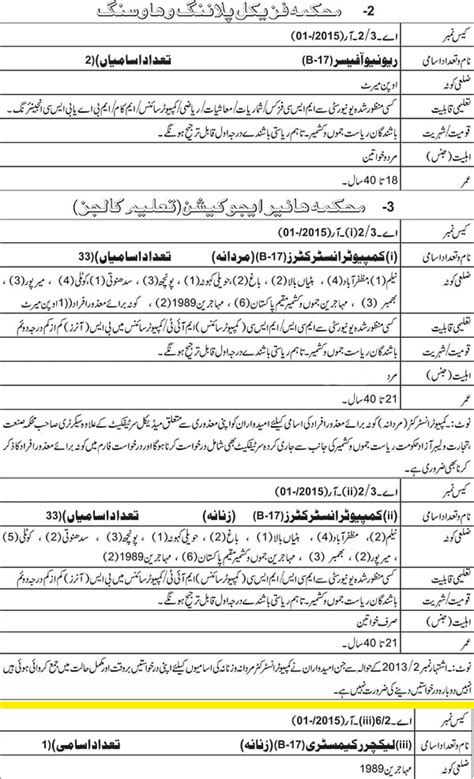 2- محکمہ فزیکل پلاننگ و ھاوسنگ
کیس نمبر اے۔2/3۔آر(2015/-01)
نام و تعداد اسامی ریونیو آفیسر (B-17) تعداد اسامیاں (2
ضلعی کوٹہ اوپن میرٹ
تعلیمی قابلیت کسی منظور شدہ یونیورسٹی سے ایم ایس سی فزکس/شماریات/معاشیات/ریاضی/کمپیوٹر سائنس/ایم کام/ایم بی اے یا بی ایس سی انجینئرنگ۔
قومیت/شہریت باشندگان ریاست جموں و کشمیر۔ تاہم ریاستی باشندے درجہ اول قابل ترجیح ہونگے۔
اہلیت (جنس) مرد و خواتین
عمر 18 تا 40 سال۔
3- محکمہ ھائیر ایجوکیشن (تعلیم کالجز)
کیس نمبر اے۔2/3(i)۔آر(2015/-01)
نام و تعداد اسامی (i) کمپیوٹر انسٹرکٹرز (B-17) (مردانہ) تعداد اسامیاں (33
ضلعی کوٹہ نیلم (1) مظفر آباد (4) ، ہٹیاں بالا (2) ، باغ (2) حویلی کہوٹہ (1) ، پونچھ (3) ، سدھنوتی (1) کوٹلی (4) ، میرپور (3)
، بھمبر (3) ، مہاجرین جموں و کشمیر مقیم پاکستان (6) ، مہاجرین 1989 (2) ، کوٹہ برائے معذور افراد ((1) اوپن میرٹ
تعلیمی قابلیت کسی منظور شدہ یونیورسٹی سے ایم ایس سی/ایم ایس سی (کمپیوٹر سائنس) ایم آئی ٹی/کمپیوٹر سائنس میں بی ایس (آنرز) کم از کم درجہ دوئم
قومیت/شہریت باشندگان ریاست جموں و کشمیر۔ تاہم ریاستی باشندے درجہ اول قابل ترجیح ہونگے۔
اہلیت (جنس) مرد
عمر 21 تا 40 سال۔
نوٹ:۔ کمپیوٹر انسٹرکٹر (مردانہ) کوٹہ برائے معذور افراد کی اسامی کیلئے امیدواران کو اپنی معذوری سے متعلق میڈیکل سرٹیفکیٹ کے علاوہ سیکرٹری صاحب محکمہ صنعت
، تجارت و لیبر آزاد حکومت ریاست جموں و کشمیر کی جانب سے جاری کردہ سرٹیفکیٹ بھی شامل درخواست کرنا ہوگا اور درخواست فارم میں کوٹہ برائے معذور افراد کا ذکر
کرنا بھی ضروری ہے۔
کیس نمبر اے۔2/3(ii)۔آر(2015/-01)
نام و تعداد اسامی (ii) کمپیوٹر انسٹرکٹرز (B-17) (زنانہ) تعداد اسامیاں (33
ضلعی کوٹہ نیلم (2) ، مظفر آباد (4) ، ہٹیاں بالا (1) ، باغ (2) ، حویلی کہوٹہ (1) ، پونچھ (3) ، سدھنوتی (2) ، کوٹلی (5)
، میرپور (2) ، بھمبر (3) ، مہاجرین جموں و کشمیر مقیم پاکستان (6) ، مہاجرین 1989 (2)
تعلیمی قابلیت کسی منظور شدہ یونیورسٹی سے ایم ایس سی/ایم ایس سی (کمپیوٹر سائنس) ایم آئی ٹی/کمپیوٹر سائنس میں بی ایس (آنرز) کم از کم درجہ دوئم
قومیت/شہریت باشندگان ریاست جموں و کشمیر۔ تاہم ریاستی باشندے درجہ اول قابل ترجیح ہونگے۔
اہلیت (جنس) صرف خواتین
عمر 21 تا 40 سال۔
نوٹ:۔ اشتہار نمبر 2/2013 کے حوالہ سے جن امیدواران نے کمپیوٹر انسٹرکٹر مردانہ و زنانہ کی اسامیوں کیلئے اپنی درخواستیں بروقت اور مکمل حالت میں جمع کروائی ہوئی ہیں
انہیں دوبارہ درخواستیں دینے کی ضرورت نہیں ہے۔
کیس نمبر اے۔6/2(iii)۔آر(2015/-01)
نام و تعداد اسامی (iii) لیکچرر کیمسٹری (B-17) (زنانہ) تعداد اسامی (1
ضلعی کوٹہ مہاجرین 1989